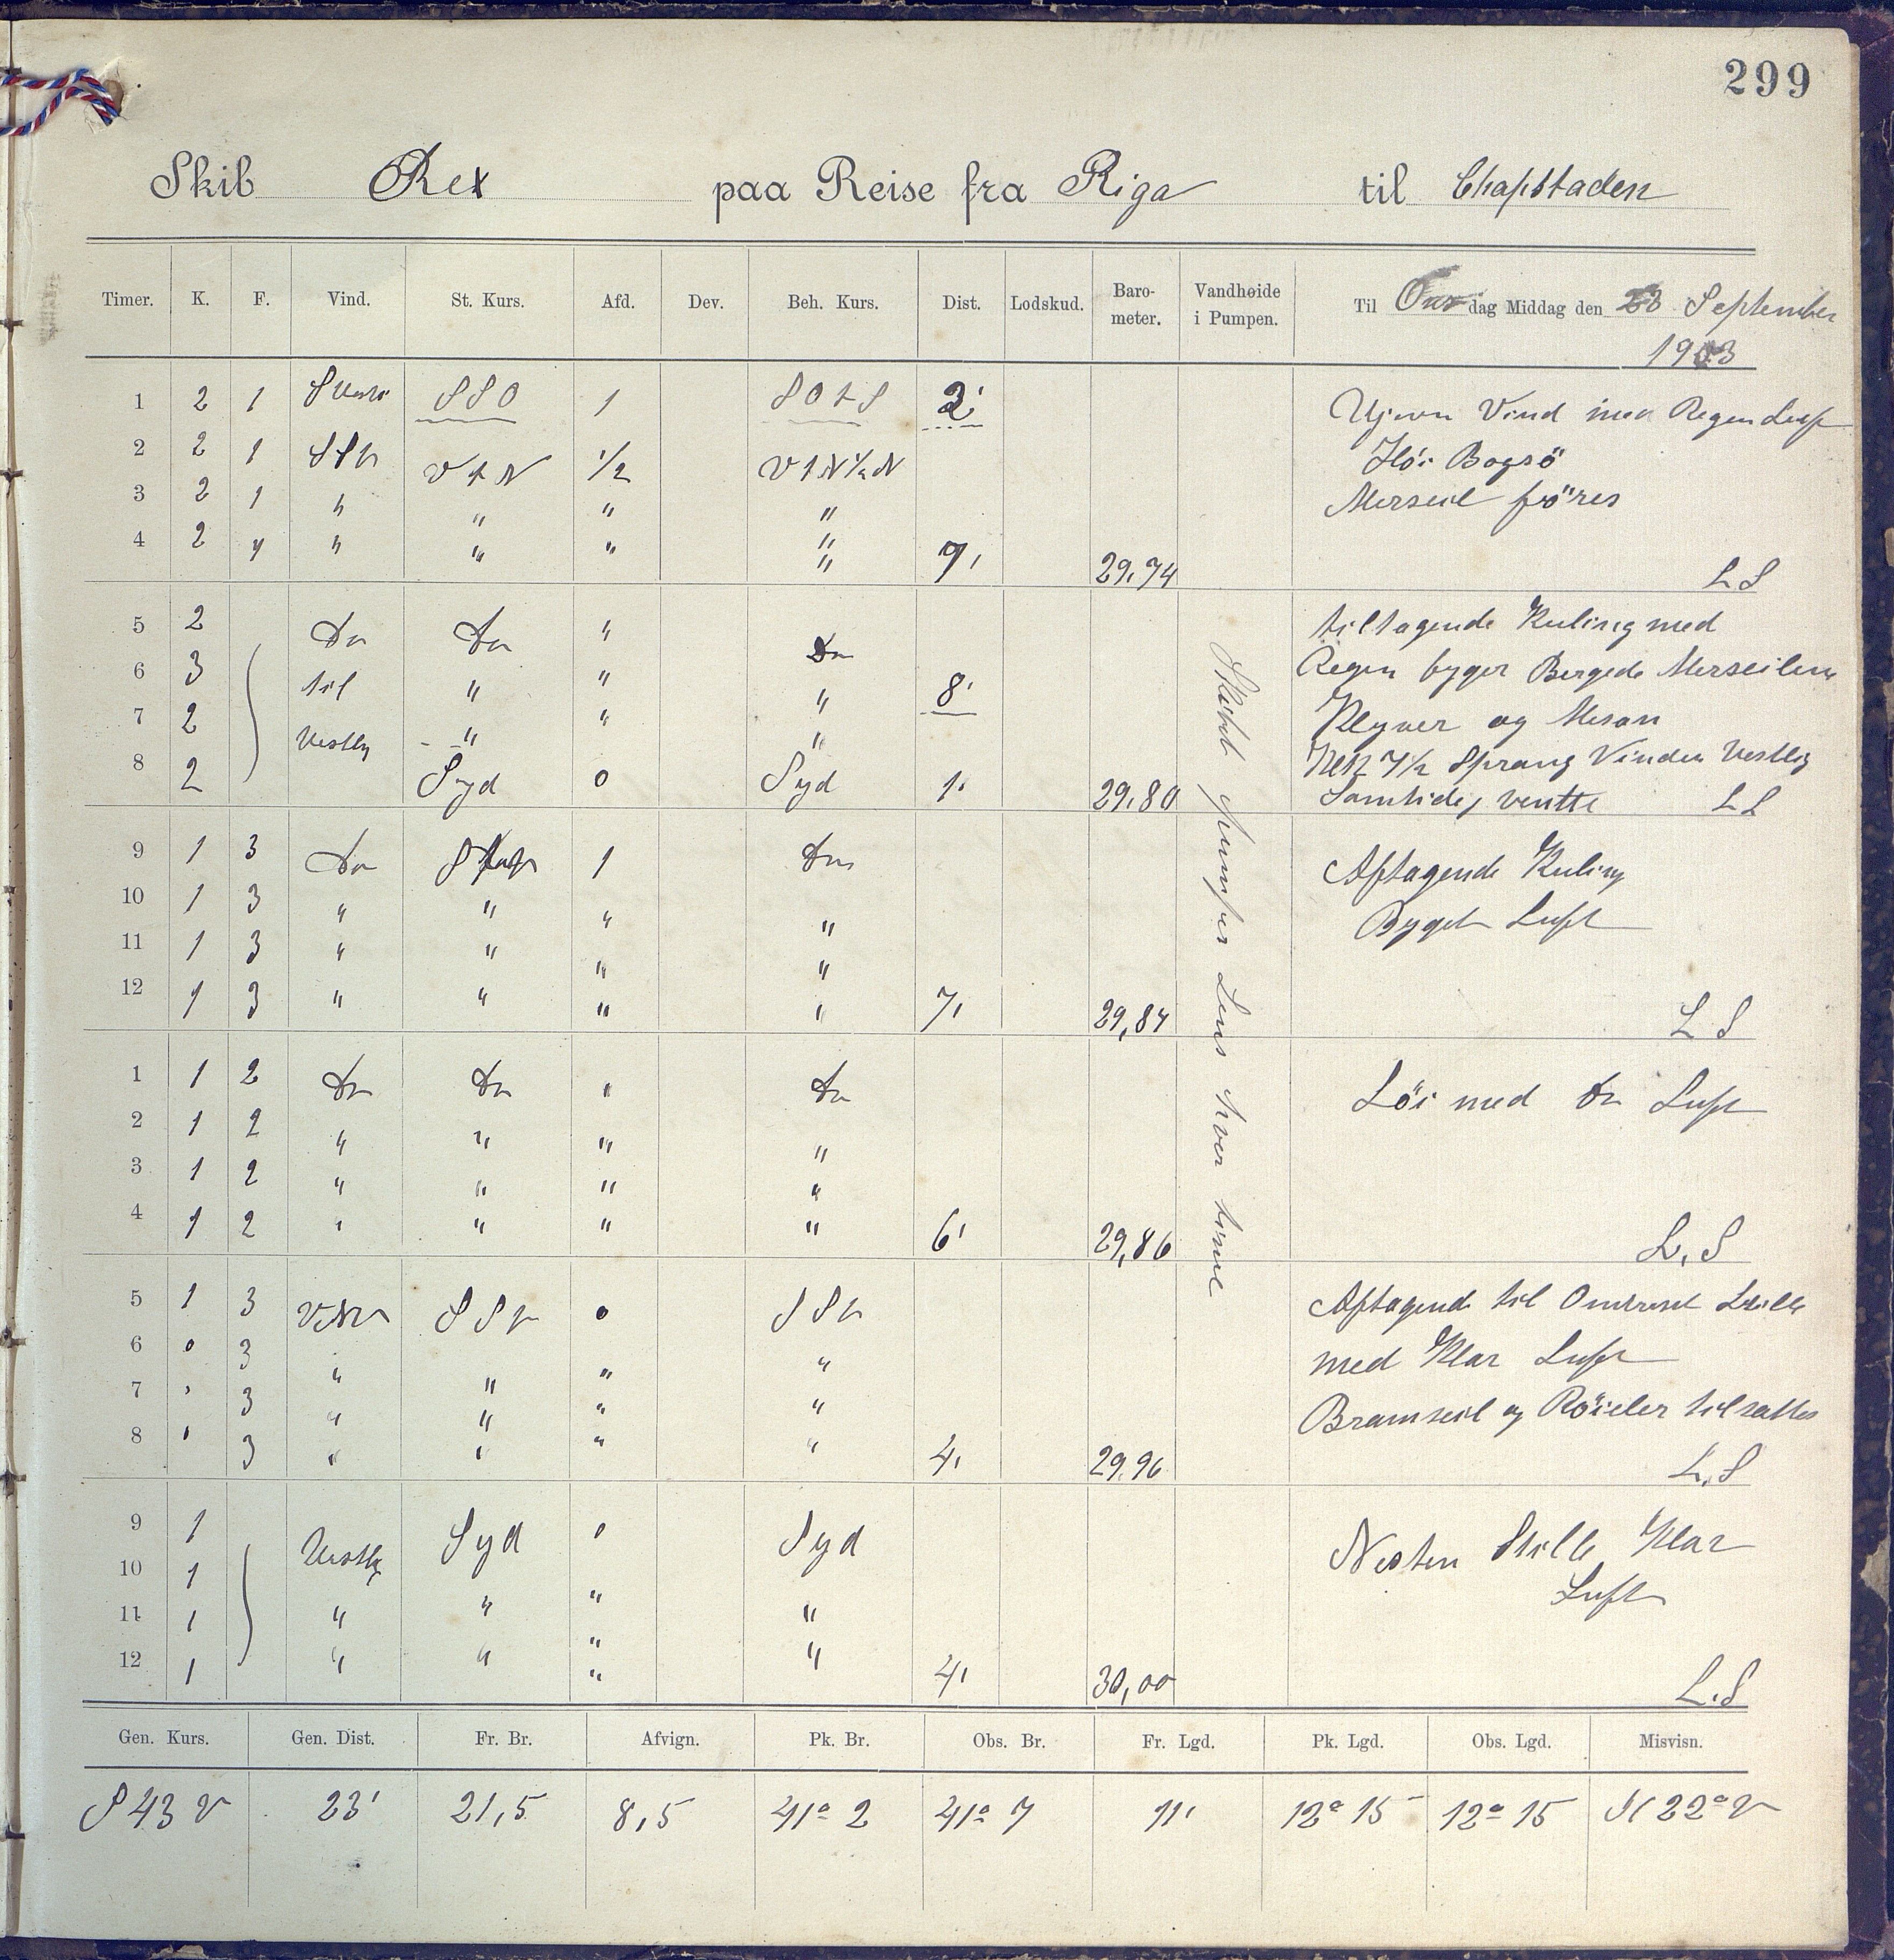 299
Skib Rex paa Reise fra Riga til Chapstaden
Timer. K. F. Vind. St. Kurs. Afd. Dev. Beh. Kurs. Dist. Lodskud. Baro-meter. Vandhøide i Pumpen. Til Ons dag Middag den 23 September
1903
1 2 1 SSO 1 SO t S 2' Ujevn Vind med Regen Luft
2 2 1 SSV V t N 1/2 V t N 1/2 N Höi Bogsö
3 2 1 " " " " Merseil föres
4 2 " " " " " 7' 29,74 LS
5 2 Do Do " Do tiltagende Kuling med
6 3 til " " " 8' Regen byger Bergede Merseilene
7 2 Vestlig " " " Klyver og Mesan
8 2 Syd 0 Syd 1' 29,80 Klk 7 1/2 Sprang Vinden Vestlig
Samtidig ventte LS
9 1 3 Do 1 Do Aftagende Kuling
10 1 3 " " " " Byget Luft
11 1 3 " " " "
12 1 3 " " " " 7' 29,84 LS
1 1 2 Do Do " Do Löi med Do Luft
2 1 2 " " " "
3 1 2 " " " "
4 1 2 " " " " 6' 29,86 L.S
5 1 3 VNV SSV 0 SSV Aftagende til Omtrent Stille
6 0 3 " " " " med Klar Luft
7 " 3 " " " " Bramseil og Röieler tilsattes
8 " 3 " " " " 4' 29,96 L.S
9 1 Vestlig Syd 0 Syd Nesten Stille Klar
10 1 " Luft
11 1 " " " "
12 1 " " " " 4' 30,00 L.S
Skibet pumpes Lens hver time
Gen. Kurs. Gen. Dist. Fr. Br. Afvign. Pk. Br. Obs. Br. Fr. Lgd. Pk. Lgd. Obs. Lgd. Misvisn.
S 43 V 23' 21,5 8,5 41° 2 41° 7 11' 12° 15 12° 15 N 22° V